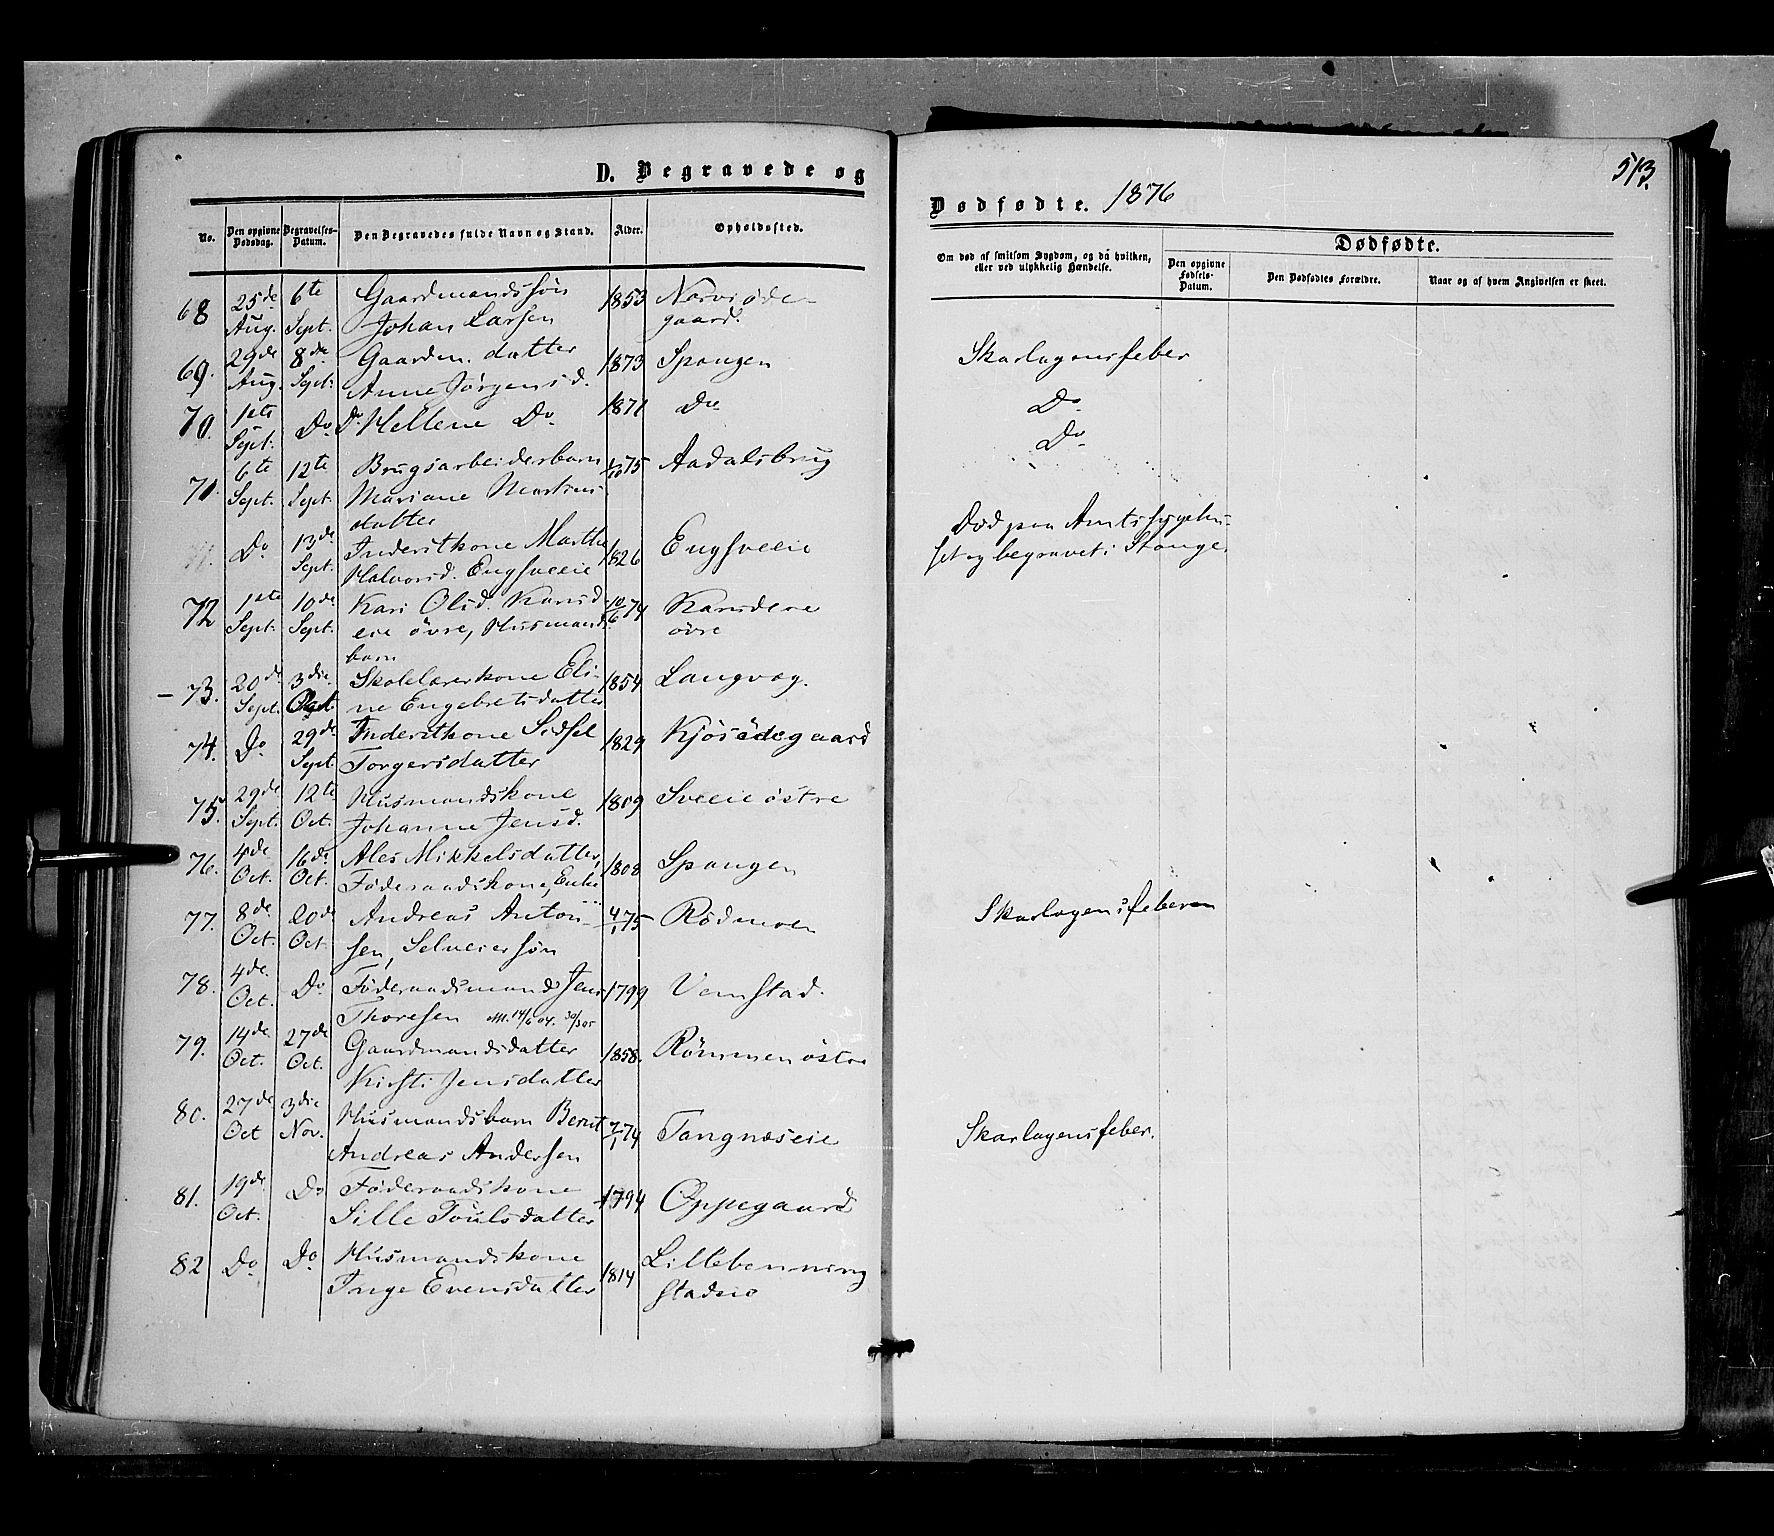 D. Begravede og
No.
Den opgivne Dødsdag.
Begravelses-Datum.
Den Begravedes fulde Navn og Stand.
Alder.
Opholdssted.
68 25de Aug. 6te Sept. Gaardmandssøn Johan Larsen 1853 gaard.
69. 29de Aug. 8de Sept. Gaardm. datter Anne Jørgensd. 1873 Spangen
70. 1ste Sept. Do Do Hellene Do 1871 Do
71. 6te Sept. 12te Sept. Brugsarbeiderbarn Mariane Martins datter 75 Aadalsbrug
Do 13de Sept. Inderstkone Marthe Halvorsd. Engsveeie 1826 Engsveeie
72 1ste Sept. 10de Sept. Kari Olsd. eie øvre, Husmands barn 10/6 74 øvre
- 73. 20de Sept. 3die Oct. Skolelærerkone Eli- ne Engebretsdatter 1854 Langvag.
74. Do 29de Sept. Inderstkone Sidsel Torgersdatter 1829 Kjøsødegaard
75. 29de Sept. 12te Oct. Husmandskone Johanne Jensd. 1809 Sveeie østre
76. 4de Oct. 16de Oct. Ales Mikkelsdatter, Føderaadskone, Enke 1808 Spangen
77. 8de Oct. 20de Oct. Andreas Anton- sen, Selveiersøn 4/1 75 Rødmoen
78. 4de Oct. Do Føderaadsmand Jens Thoresen 1799 Vemstad.
79. 14de Oct. 27de Oct. Gaardmandsdatter Kirsti Jensdatter 1858. Rømmen østre
80. 27de Oct 3die Nov. Husmandsbarn Bernt Andreas Andersen 7/1 74 Tangnæseie
81. 19de Oct. Do Føderaadskone Sille Poulsdatter 1794 Oppegaard
82 Do Do Husmandskone Inge Evensdatter 1814 Lillebenning stadeie
513.
Dødfødte. 1876
Om død af smitsom Sygdom, og da hvilken, eller ved ulykkelig Hændelse.
Dødfødte.
Den opgivne Fødsels-Datum.
Den Dødfødtes Forældre.
Naar og af hvem Angivelsen er skeet.
Skarlagensfeber
Do
Do
Død paa Amtssygehu-
set og begravet i Stange.
Skarlagensfeberen
Skarlagensfeber.